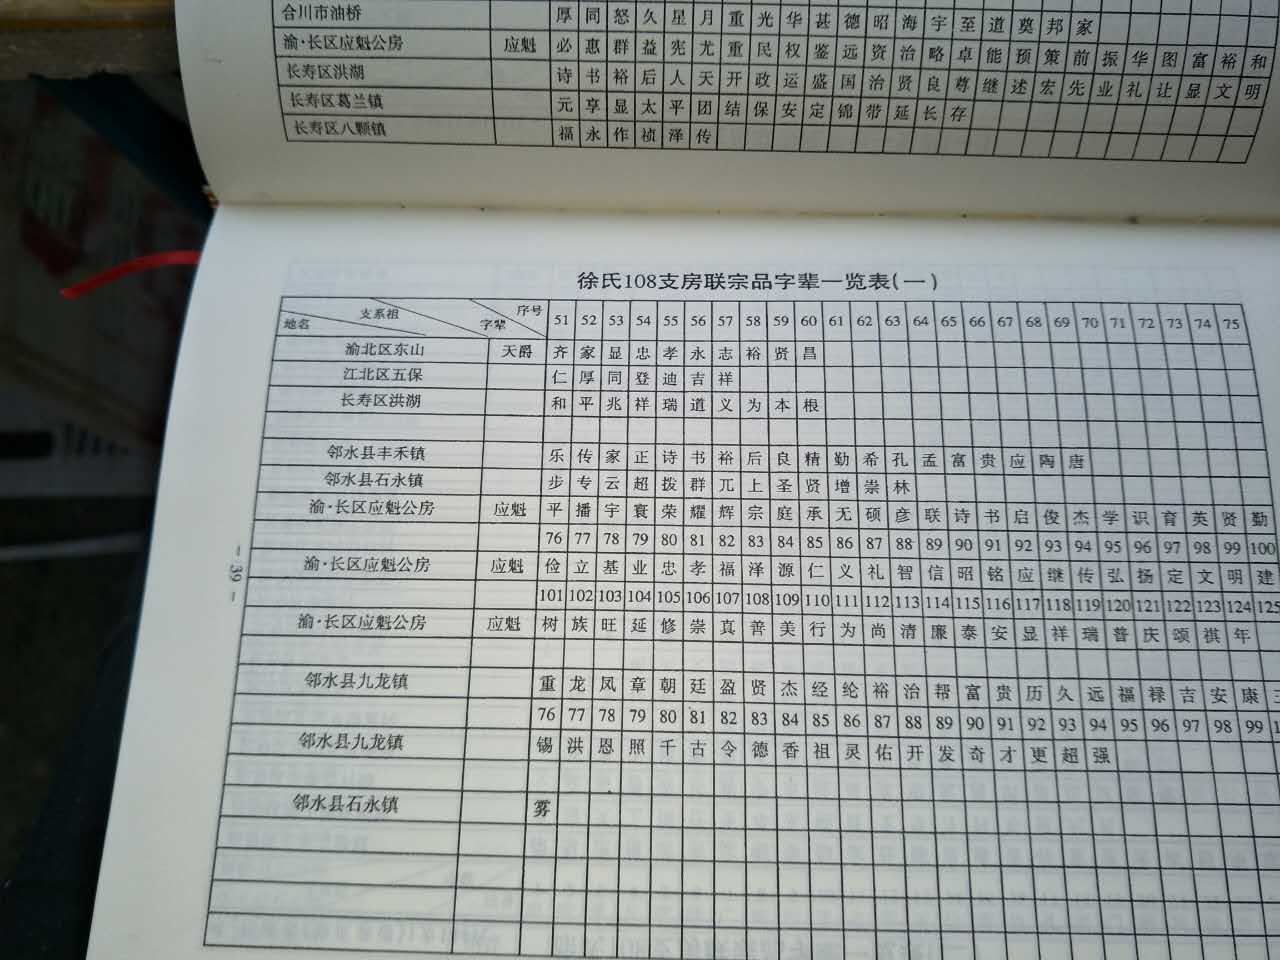 合川市油桥 厚 同 怒 久 星 月 重 光 华 甚 德 昭 海 宇 至 道 奠 邦 家
渝·长区应魁公房 应魁 必 惠 群 益 宪 尤 重 民 权 鉴 远 资 治 略 卓 能 预 策 前 振 华 图 富 裕 和
长寿区洪湖 诗 书 裕 后 人 天 开 政 运 盛 国 治 贤 良 尊 继 述 宏 先 业 礼 让 显 文 明
长寿区葛兰镇 元 享 显 太 平 团 结 保 安 定 锦 带 延 长 存
长寿区八颗镇 福 永 作 祯 泽 传
徐氏108支房联宗品字辈一览表(一)
地名 支系祖 字辈 序号 51 52 53 54 55 56 57 58 59 60 61 62 63 64 65 66 67 68 69 70 71 72 73 74 75
渝北区东山 天爵 齐 家 显 忠 孝 永 志 裕 贤 昌
江北区五保 仁 厚 同 登 迪 吉 祥
长寿区洪湖 和 平 兆 祥 瑞 道 义 为 本 根
邻水县丰禾镇 乐 传 家 正 诗 书 裕 后 良 精 勤 希 孔 孟 富 贵 应 陶 唐
邻水县石永镇 步 专 云 超 拨 群 兀 上 圣 贤 增 崇 林
渝·长区应魁公房 应魁 平 播 宇 寰 荣 耀 辉 宗 庭 承 无 硕 彦 联 诗 书 启 俊 杰 学 识 育 英 贤 勤
76 77 78 79 80 81 82 83 84 85 86 87 88 89 90 91 92 93 94 95 96 97 98 99 100
渝·长区应魁公房 应魁 俭 立 基 业 忠 孝 福 泽 源 仁 义 礼 智 信 昭 铭 应 继 传 弘 扬 定 文 明 建
101 102 103 104 105 106 107 108 109 110 111 112 113 114 115 116 117 118 119 120 121 122 123 124 125
渝·长区应魁公房 应魁 树 族 旺 延 修 崇 真 善 美 行 为 尚 清 廉 泰 安 显 祥 瑞 普 庆 颂 祺 年
邻水县九龙镇 重 龙 凤 章 朝 廷 盈 贤 杰 经 纶 裕 治 帮 富 贵 历 久 远 福 禄 吉 安 康
76 77 78 79 80 81 82 83 84 85 86 87 88 89 90 91 92 93 94 95 96 97 98 99
邻水县九龙镇 锡 洪 恩 照 千 古 令 德 香 祖 灵 佑 开 发 奇 才 更 超 强
邻水县石永镇 雾
- 39 -